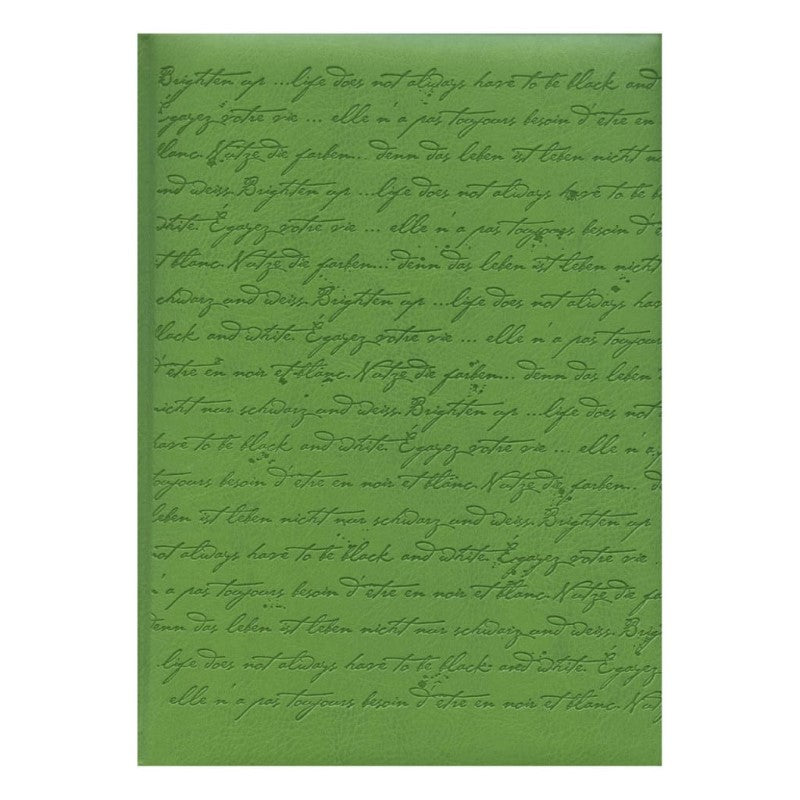 Brighten up ...life does not always have to be black and
Égayez votre vie ... elle n'a pas toujours besoin d'etre en
blanc. Nutze die farben... denn das leben ist leben nicht n
und weiss. Brighten up ...life does not always have to be b
white. Égayez votre vie ... elle n'a pas toujours besoin d'
t blanc. Nutze die farben... denn das leben ist leben nicht
schwarz and weiss. Brighten up ...life does not always ha
lack and white. Égayez votre vie ... elle n'a pas toujour
d'etre en noir et blanc. Nutze die farben... denn das leben
nicht nur schwarz and weiss. Brighten up ...life does not
have to be black and white. Égayez votre vie ... elle n'a
toujours besoin d'etre en noir et blanc. Nutze die farben... d
leben ist leben nicht nur schwarz und weiss. Brighten up
not always have to be black and white. Égayez votre vie ..
n'a pas toujours besoin d'etre en noir et blanc. Nutze die fa
denn das leben ist leben nicht nur schwarz und weiss. Brig
...life does not always have to be black and white. Égayez
elle n'a pas toujours besoin d'etre en noir et blanc. Nut